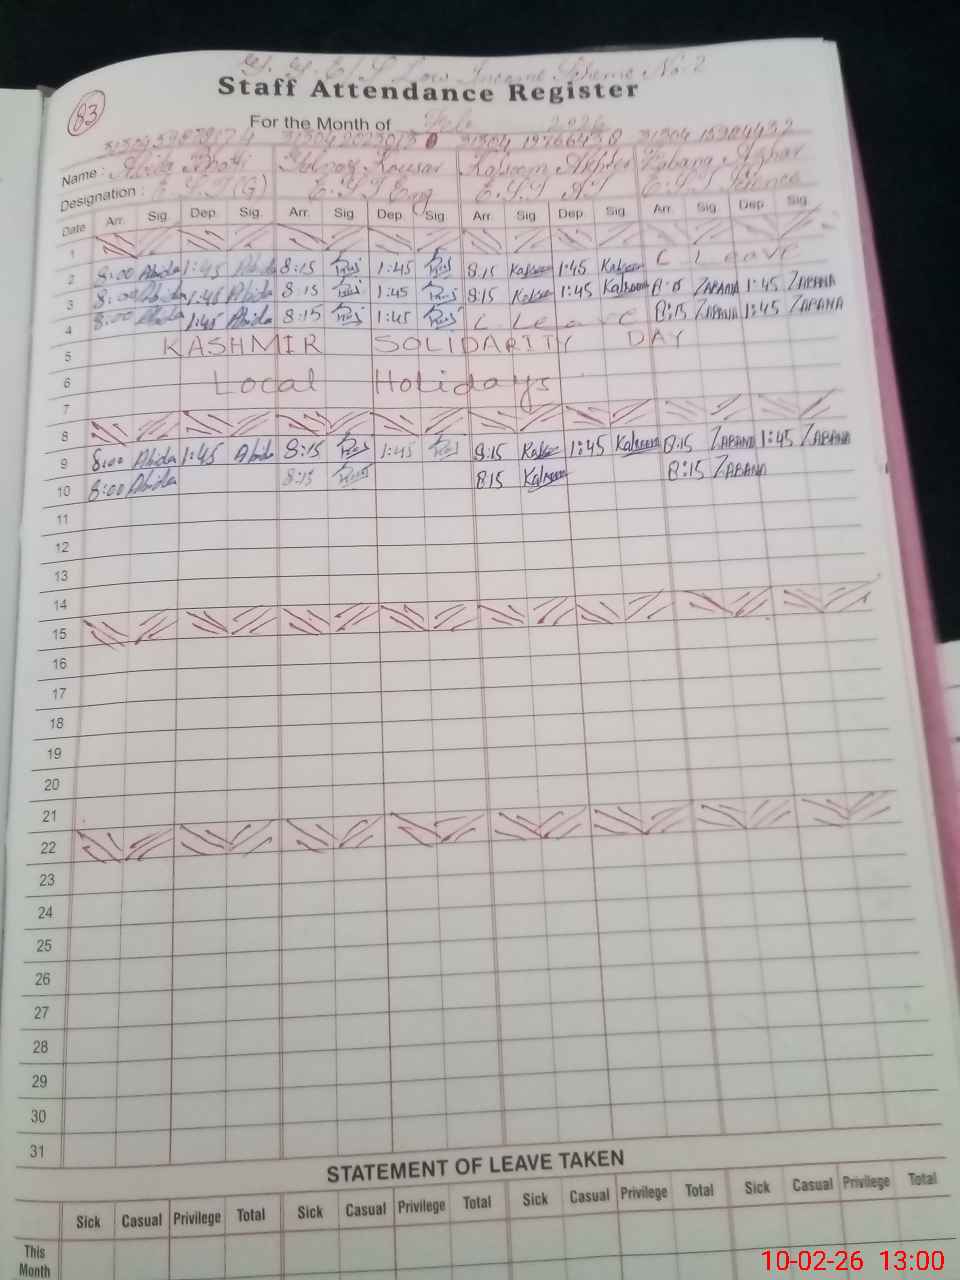 G. G. E/S Low Income Scheme No. 2
Staff Attendance Register
83
For the Month of Feb 2026
Name : Abida Kausar Kalsoom Akhter Zabana Azhar
Designation : E.S.T(G) E.S.T Eng E.S.T E.S.T Science
Date Arr. Sig. Dep. Sig. Arr. Sig Dep. Sig. Arr. Sig Dep. Sig. Arr. Sig Dep. Sig.
1
2 8:00 Abida 1:45 Abida 8:15 1:45 8:15 Kalsoom 1:45 Kalsoom C Leave
3 8:00 Abida 1:45 Abida 8:15 1:45 8:15 Kalsoom 1:45 Kalsoom 8:15 ZABANA 1:45 ZABANA
4 8:00 Abida 1:45 Abida 8:15 1:45 C Leave 8:15 ZABANA 1:45 ZABANA
5 KASHMIR SOLIDARITY DAY
6 Local Holidays
7
8
9 8:00 Abida 1:45 Abida 8:15 1:45 8:15 Kalsoom 1:45 Kalsoom 8:15 ZABANA 1:45 ZABANA
10 8:00 Abida 8:15 8:15 Kalsoom 8:15 ZABANA
11
12
13
14
15
16
17
18
19
20
21
22
23
24
25
26
27
28
29
30
31
STATEMENT OF LEAVE TAKEN
Sick Casual Privilege Total Sick Casual Privilege Total Sick Casual Privilege Total Sick Casual Privilege Total
This
Month
10-02-26 13:00